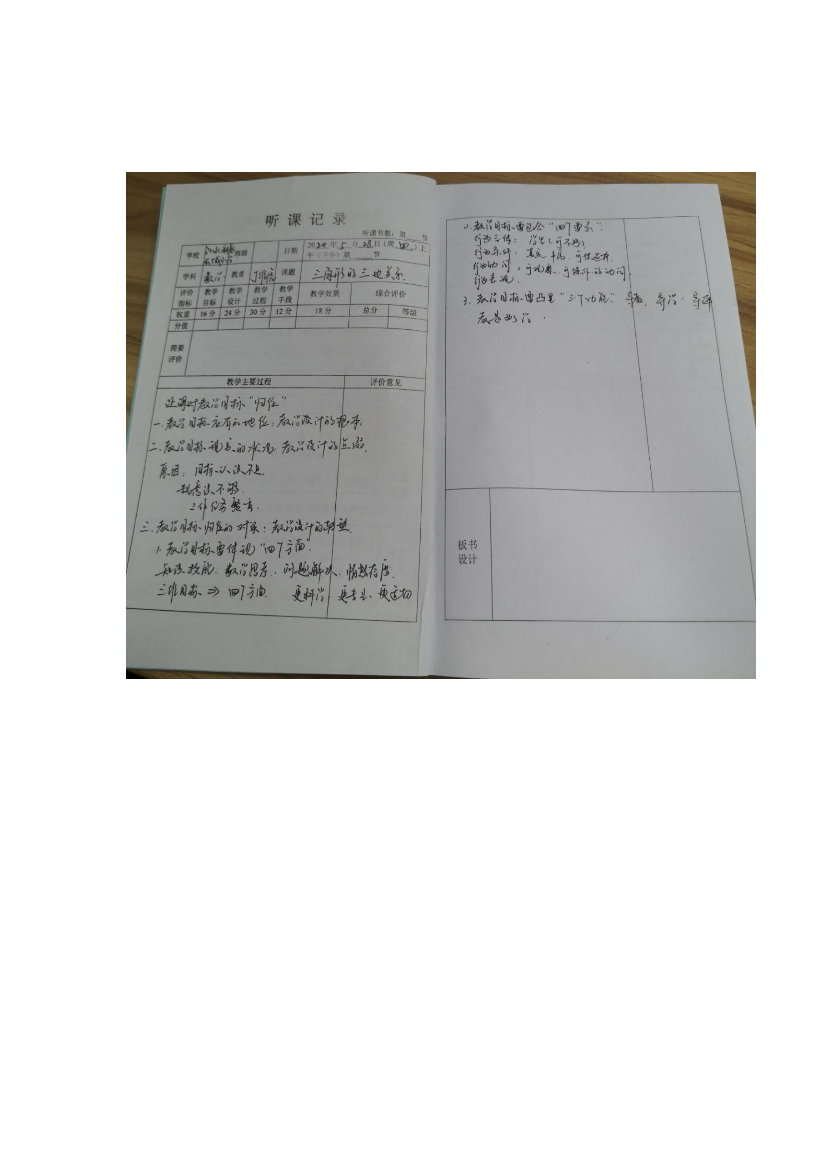 听课记录
听课节数：第 节
学校 班级 日期 2020年5月28日（周四）上
午（下午）第 节
学科 数学 教者 课题 三角形的三边关系
评价指标 教学目标 教学设计 教学过程 教学手段 教学效果 综合评价
权重 16分 24分 30分 12分 18分 总分 等级
分值
简要评价
教学主要过程 评价意见
让课时教学目标“归位”
一.教学目标应有的地位：教学设计的根本.
二.教学目标现实的状况：教学设计的点缀.
原因：目标认识不足.
思考度不够.
工作任务繁重.
三.教学目标归位的对策：教学设计的
1.教学目标要体现“四个方面”.
知识技能、数学思考、问题解决、情感态度.
三维目标 ⇒ 四个方面. 更科学、更专业、更
2.教学目标要包含“四个要素”：
行为主体：学生（可不写）
行为条件：
行为动词：可观察、可操作的动词.
行为表现.
3.教学目标要凸显“三个功能”：导教、导学、导评
板书设计